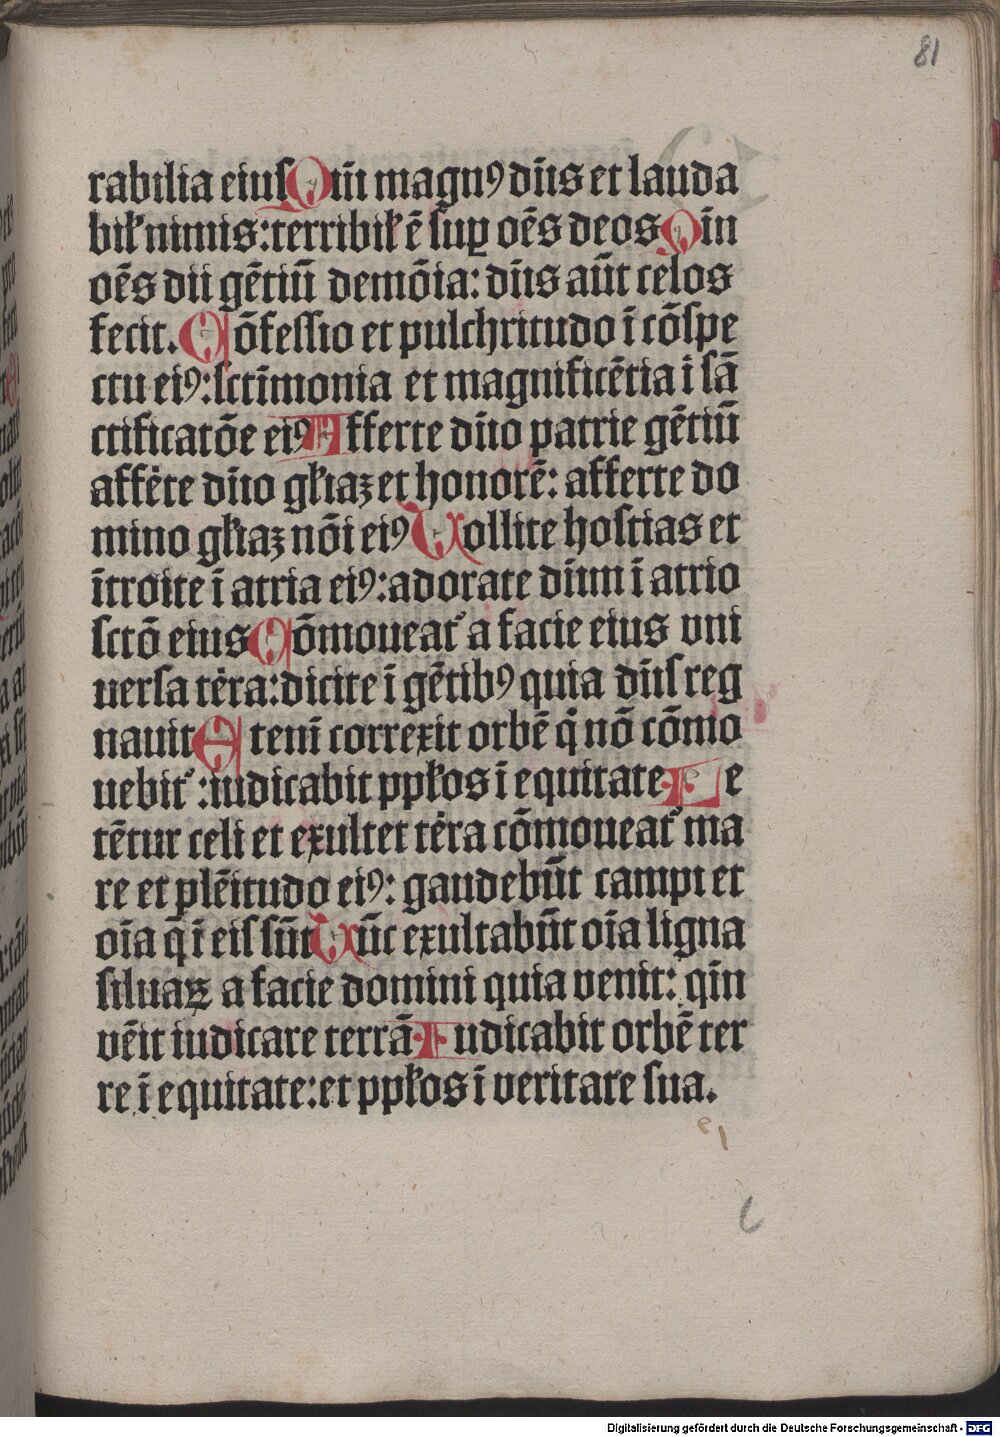 81
rabilia eiusQm̄ magnꝰ dn̄s et lauda
bil' nimis: terribil' ē suꝑ oēs deosQm̄
oēs dii gētiū demōia: dn̄s aūt celos
fecit. Cōfessio et pulchritudo ī cōspe
ctu eiꝰ: sctīmonia et magnificētia ī sā
ctificatōe eiꝰAfferte dn̄o patrie gētiū
afferte dn̄o gl'iaꝫ et honorē: afferte do
mino gl'iaꝫ nōi eiꝰTollite hostias et
ītroite ī atria eiꝰ: adorate dn̄m ī atrio
sctō eiusCōmoueat' a facie eius vni
uersa terra: dicite ī gētibꝰ quia dn̄s reg
nauitEtenī correxit orbē q̄ nō cōmo
uebit': iudicabit ppl'os ī equitate. Le
tētur celi et exultet terra cōmoueat' ma
re et plēitudo eiꝰ: gaudebūt campi et
oīa q̄ ī eis sūtTūc exultabūt oīa ligna
siluaꝝ a facie domini quia venit: qm̄
vēit iudicare terrā. Iudicabit orbē ter
re ī equitate: et ppl'os ī veritate sua.
Digitalisierung gefördert durch die Deutsche Forschungsgemeinschaft - DFG